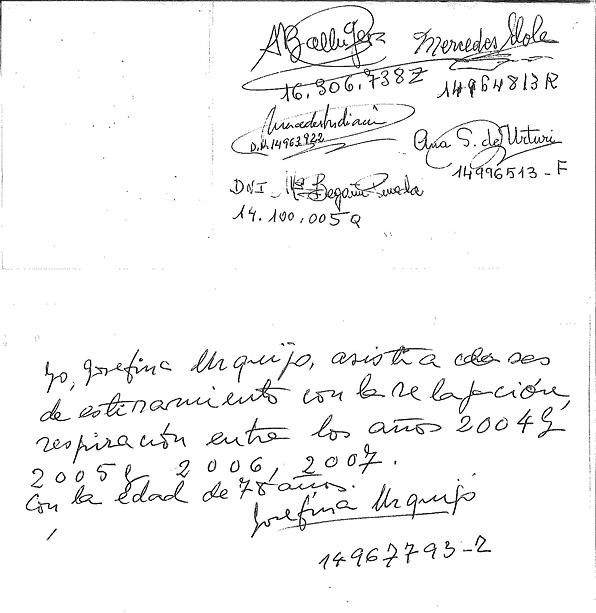 Mercedes Mola
16.306.738Z 14964813R
D.N. 14963922
Ana S. de Urturi
14996513-F
DNI Mª Begoña Pineda
14.100.005Q
Yo, Josefina Urquijo, asistí a clases
de estiramiento con la relajación,
respiración entre los años 2004 y
2005 y 2006, 2007.
Con la edad de 78 años.
Josefina Urquijo
14967793-Z